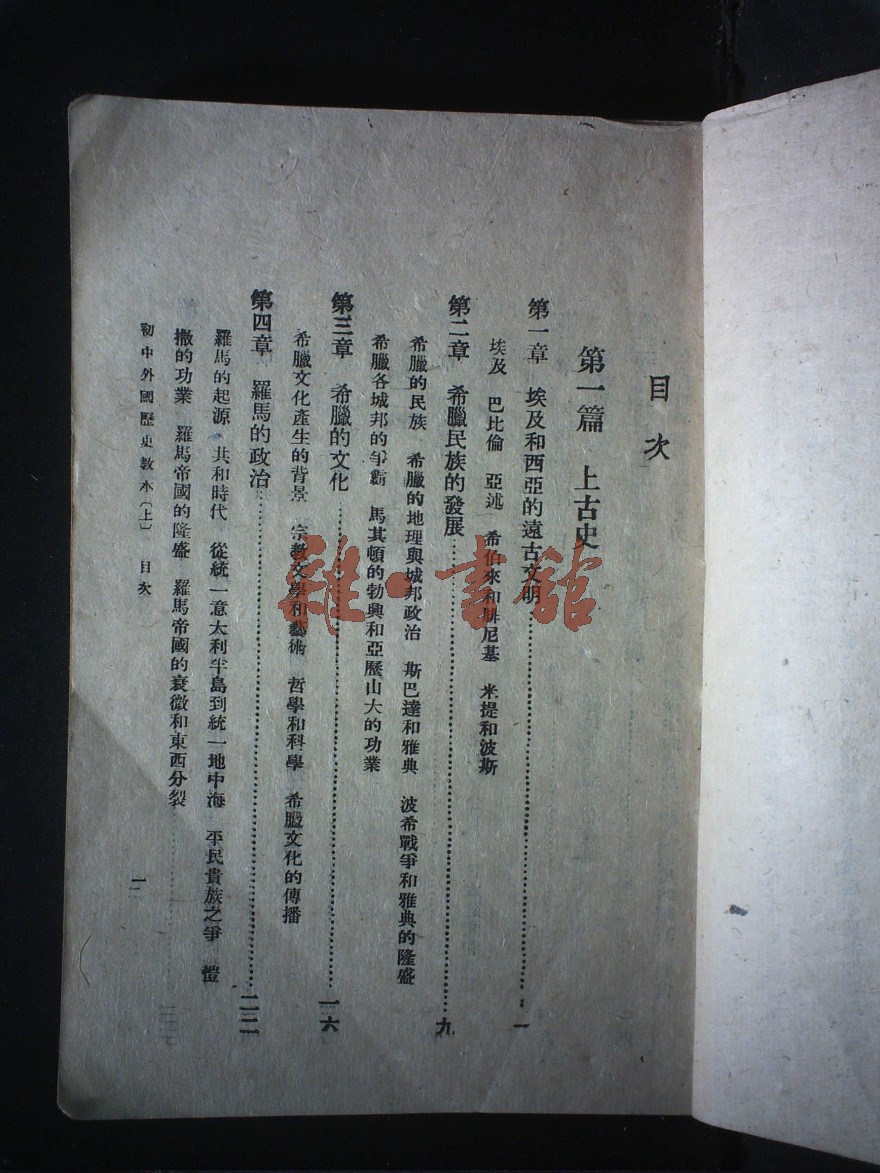 目次
第一篇　上古史
第一章　埃及和西亞的遠古文明……一
埃及　巴比倫　亞述　希伯來和腓尼基　米提和波斯
第二章　希臘民族的發展……九
希臘的民族　希臘的地理與城邦政治　斯巴達和雅典　波希戰爭和雅典的隆盛
希臘各城邦的爭霸　馬其頓的勃興和亞歷山大的功業
第三章　希臘的文化……一六
希臘文化產生的背景　宗教文學和藝術　哲學和科學　希臘文化的傳播
第四章　羅馬的政治……二二
羅馬的起源　共和時代　從統一意太利半島到統一地中海　平民貴族之爭　愷
撒的功業　羅馬帝國的隆盛　羅馬帝國的衰微和東西分裂
初中外國歷史教本（上）　目次
一
雜·書館